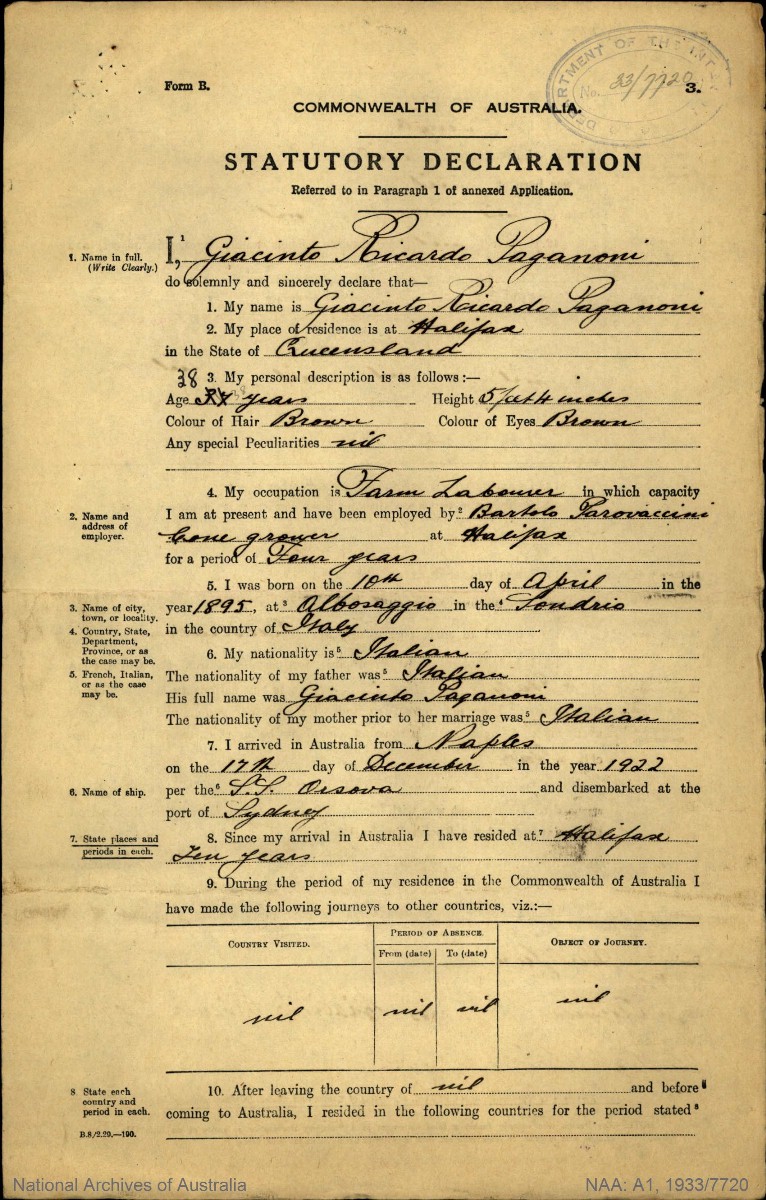 DEPARTMENT OF THE
No. 33/7720
Form B.
3.
COMMONWEALTH OF AUSTRALIA.
STATUTORY DECLARATION
Referred to in Paragraph 1 of annexed Application.
1. Name in full.
(Write Clearly.)
I,¹ Giacinto Ricardo Paganoni
do solemnly and sincerely declare that—
1. My name is Giacinto Ricardo Paganoni
2. My place of residence is at Halifax
in the State of Queensland
38 3. My personal description is as follows:—
Age years Height 5 feet 4 inches
Colour of Hair Brown Colour of Eyes Brown
Any special Peculiarities nil
4. My occupation is Farm Labourer in which capacity
2. Name and
address of
employer.
I am at present and have been employed by² Bartolo Parovaccini
Cane grower at Halifax
for a period of Four years
5. I was born on the 10th day of April in the
3. Name of city,
town, or locality.
year 1895, at³ Albosaggio in the⁴ Sondrio
4. Country, State,
Department,
Province, or as
the case may be.
in the country of Italy
6. My nationality is⁵ Italian
5. French, Italian,
or as the case
may be.
The nationality of my father was⁵ Italian
His full name was Giacinto Paganoni
The nationality of my mother prior to her marriage was⁵ Italian
7. I arrived in Australia from Naples
on the 17th day of December in the year 1922
6. Name of ship.
per the⁶ S.S. Orsova and disembarked at the
port of Sydney
7. State places and
periods in each.
8. Since my arrival in Australia I have resided at⁷ Halifax
Ten years
9. During the period of my residence in the Commonwealth of Australia I
have made the following journeys to other countries, viz.:—
COUNTRY VISITED.
PERIOD OF ABSENCE.
From (date) To (date)
OBJECT OF JOURNEY.
nil nil nil nil
8 State each
country and
period in each.
10. After leaving the country of nil and before⁸
coming to Australia, I resided in the following countries for the period stated⁸
B.8/2.29.—190.
National Archives of Australia
NAA: A1, 1933/7720